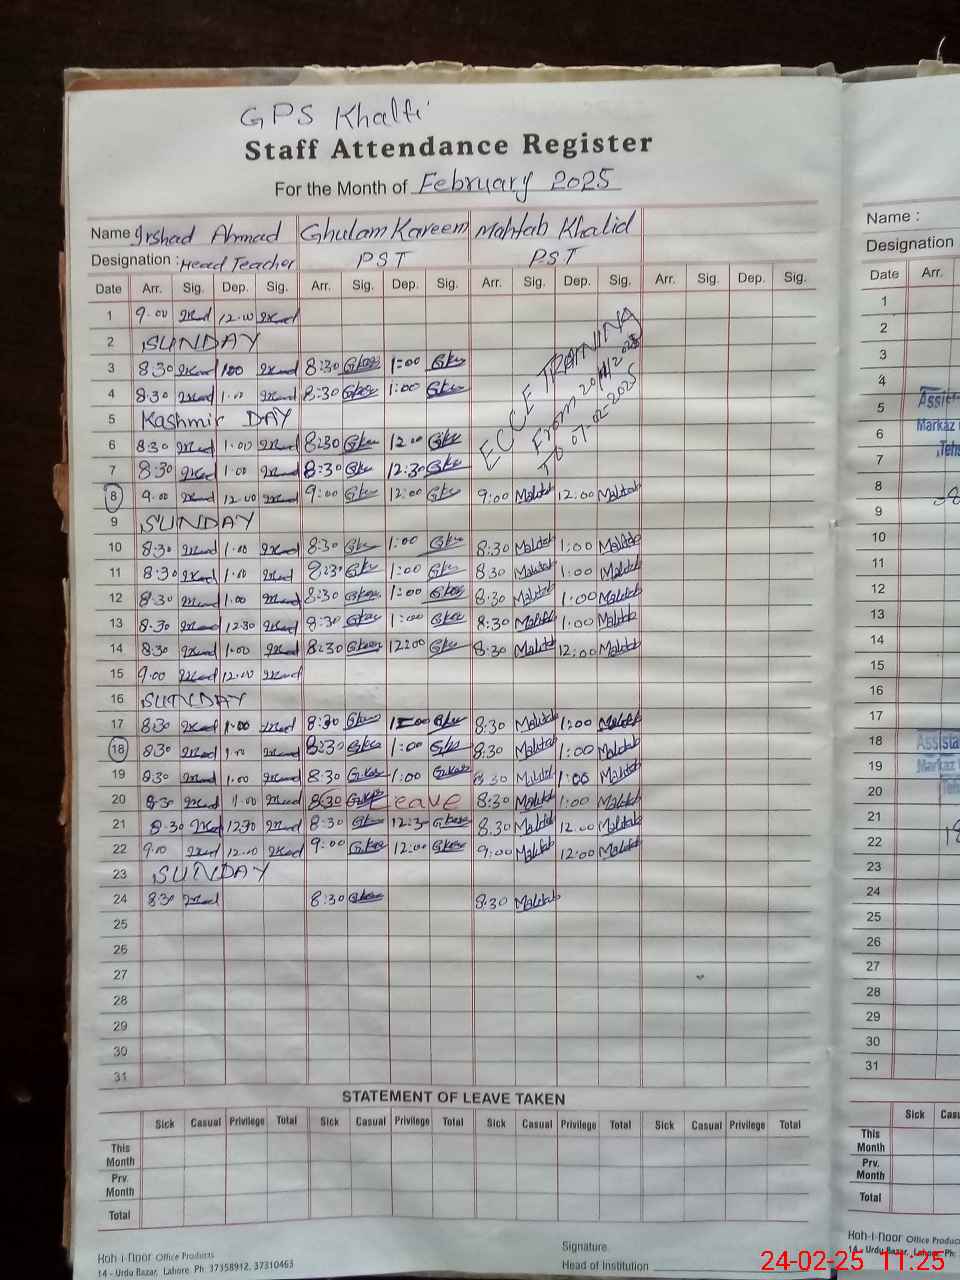 GPS Khalfi
Staff Attendance Register
For the Month of February 2025
Name Irshad Ahmad Ghulam Kareem Mahtab Khalid
Designation : Head Teacher PST PST
Date Arr. Sig. Dep. Sig. Arr. Sig. Dep. Sig. Arr. Sig. Dep. Sig. Arr. Sig. Dep. Sig.
ECCE TRAINING
From 20/1/2025
To 07-02-2025
1 9.00 12.00
2 SUNDAY
3 8:30 1.00 8:30 1:00
4 8.30 1.00 8:30 1:00
5 Kashmir DAY
6 8:30 1.00 8:30 12:00
7 8:30 1.00 8:30 12:30
8 9.00 12.00 9:00 12:00 9:00 Mahtab 12:00 Mahtab
9 SUNDAY
10 8:30 1.00 8:30 1:00 8:30 Mahtab 1:00 Mahtab
11 8:30 1.00 8:30 1:00 8:30 Mahtab 1:00 Mahtab
12 8:30 1.00 8:30 1:00 8:30 Mahtab 1:00 Mahtab
13 8.30 12.30 8:30 1:00 8:30 Mahtab 1:00 Mahtab
14 8:30 1.00 8:30 12:00 8:30 Mahtab 12:00 Mahtab
15 9.00 12.00
16 SUNDAY
17 8:30 1.00 8:30 1:00 8:30 Mahtab 1:00 Mahtab
18 8.30 1.00 8:30 1:00 8:30 Mahtab 1:00 Mahtab
19 8:30 1.00 8:30 1:00 8:30 Mahtab 1:00 Mahtab
20 8:30 1.00 8:30 Leave 8:30 Mahtab 1:00 Mahtab
21 8.30 1230 8:30 12:30 8:30 Mahtab 12:00 Mahtab
22 9.00 12.00 9:00 12:00 9:00 Mahtab 12:00 Mahtab
23 SUNDAY
24 8:30 8:30 8:30 Mahtab
25
26
27
28
29
30
31
STATEMENT OF LEAVE TAKEN
Sick Casual Privilege Total Sick Casual Privilege Total Sick Casual Privilege Total Sick Casual Privilege Total
This Month
Prv. Month
Total
Koh-i-noor Office Products
14 - Urdu Bazar, Lahore. Ph: 37358912, 37310463
Signature
Head of Institution
Name :
Designation
Date Arr.
1
2
3
4
5
6
7
8
9
10
11
12
13
14
15
16
17
18
19
20
21
22
23
24
25
26
27
28
29
30
31
Markaz
Markaz
Sick
This Month
Prv. Month
Total
Koh-i-noor Office
14 - Urdu Bazar, Lahore. Ph:
24-02-25 11:25